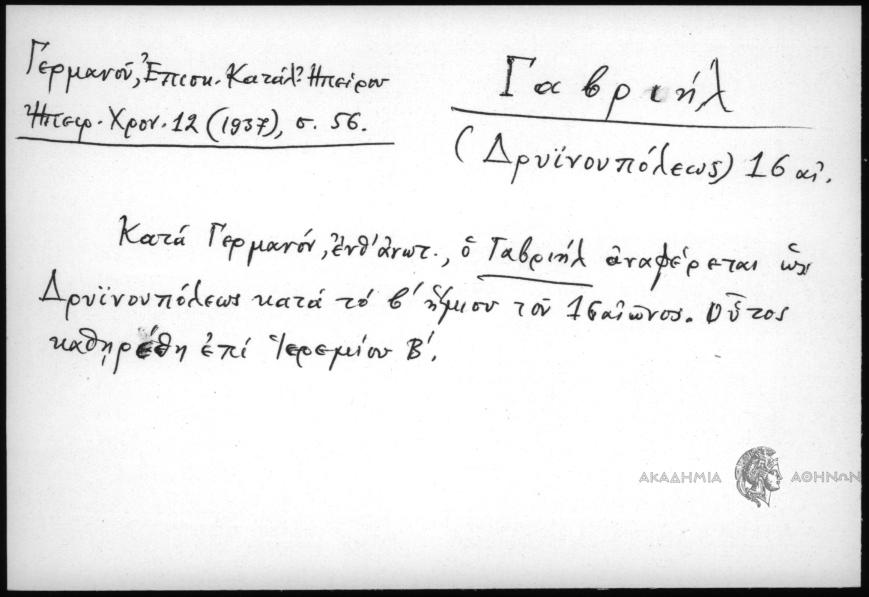 Γερμανοῦ, Ἐπισκ. Κατάλ. Ἠπείρου
Ἠπειρ. Χρον. 12 (1937), σ. 56.
Γαβριήλ
(Δρυϊνουπόλεως) 16 αἰ.
Κατά Γερμανόν, ἔνθ' ἀνωτ., ὁ Γαβριήλ ἀναφέρεται ὡς
Δρυϊνουπόλεως κατά τό β' ἥμισυ τοῦ 16 αἰῶνος. Οὗτος
καθηρέθη ἐπί Ἱερεμίου Β'.
ΑΚΑΔΗΜΙΑ ΑΘΗΝΩΝ